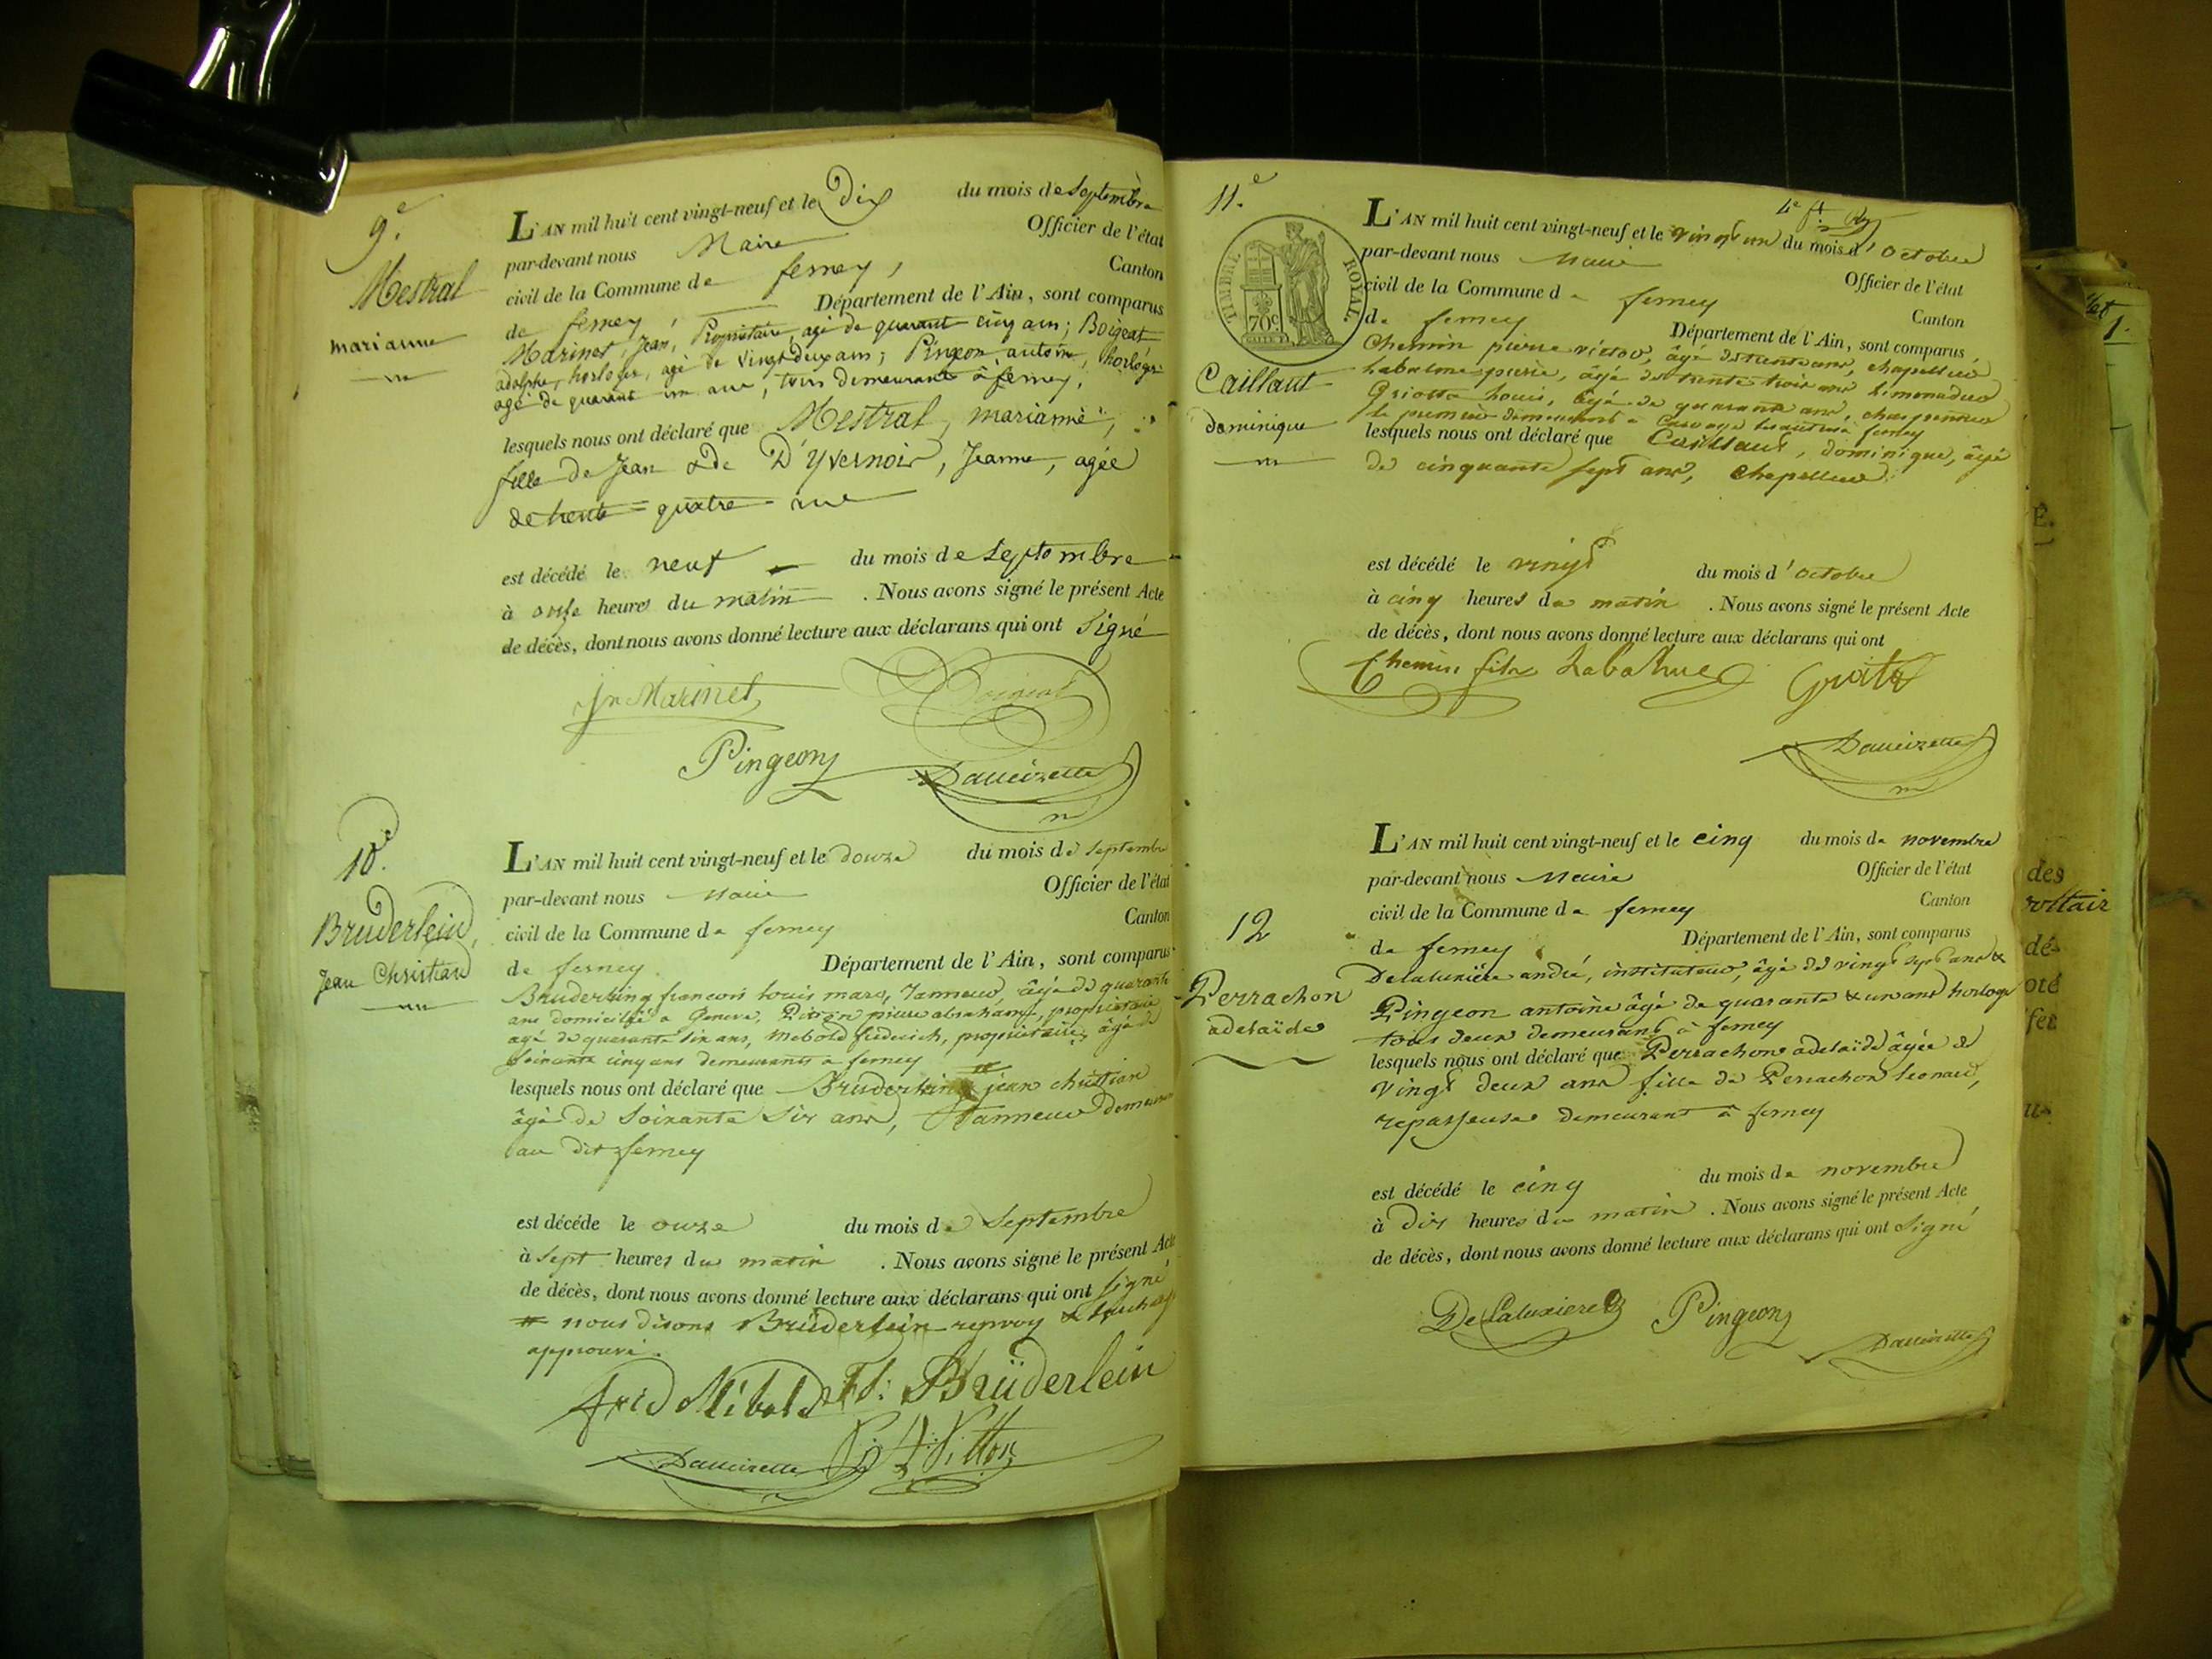 9.e
Mestral
marianne
L'AN mil huit cent vingt-neuf et le Dix du mois de Septembre
par-devant nous Maire Officier de l'état
civil de la Commune de ferney, Canton
de ferney, Département de l'Ain, sont comparus
Marinet, Jean, Propriétaire, agé de quarant cinq ans; Boigeat
adolphe, horloger, agé de vingt deux ans; Pingeon, antoine, horloger
agé de quarant un ans, tous demeurant à ferney,
lesquels nous ont déclaré que Mestral, marianne,
fille de Jean & de D'Yvernois, Jeanne, agée
de trente = quatre ans
est décédé le neuf du mois de Septembre
à onze heures du matin . Nous avons signé le présent Acte
de décès, dont nous avons donné lecture aux déclarans qui ont Signé
Jn Marinet
Pingeon
10.e
Bruderlein,
Jean Christian
L'AN mil huit cent vingt-neuf et le douze du mois de Septembre
par-devant nous Maire Officier de l'état
civil de la Commune de ferney Canton
de ferney Département de l'Ain, sont comparus
Bruderling francois louis marc, Tanneur, âgé de quarante
ans domicilié a Geneve, pierre abraham, propriétaire
agé de quarante six ans, Mebold frederich, propriétaire, âgé de
soixante cinq ans demeurants a ferney
lesquels nous ont déclaré que Bruderling jean christian
âgé de Soixante Six ans, Tanneur demeurant
au dit ferney
est décédé le onze du mois de Septembre
à sept heures du matin . Nous avons signé le présent Acte
de décès, dont nous avons donné lecture aux déclarans qui ont signé
nous disons Brüderlein renvoy &
approuvé.
frid Mebold Fs: Brüderlein
11.e
TIMBRE ROYAL
70c
Caillaut
dominique
L'AN mil huit cent vingt-neuf et le vingt un du mois d'Octobre
par-devant nous Maire Officier de l'état
civil de la Commune de ferney Canton
de ferney Département de l'Ain, sont comparus,
Chemin pierre victor, âgé de trente ans, chapellier
Labalme pierre, âgé de trente trois ans limonadier
Griotta Louis, âgé de quarante ans, charpentier
le premier demeurant a les autres a ferney
lesquels nous ont déclaré que Caillaut, dominique, âgé
de cinquante sept ans, Chapellier
est décédé le vingt du mois d'octobre
à cinq heures du matin . Nous avons signé le présent Acte
de décès, dont nous avons donné lecture aux déclarans qui ont
Chemin fils Labalme
12
Perrachon
adelaïde
L'AN mil huit cent vingt-neuf et le cinq du mois de novembre
par-devant nous Maire Officier de l'état
civil de la Commune de ferney Canton
de ferney Département de l'Ain, sont comparus
Delaluxière andré, instituteur, âgé de vingt sept ans &
Pingeon antoine âgé de quarante & un ans horloger
tous deux demeurant à ferney
lesquels nous ont déclaré que Perrachon adelaïde âgée de
Vingt deux ans fille de Perrachon Leonard,
repasseuse demeurant à ferney
est décédé le cinq du mois de novembre
à Dix heures du matin . Nous avons signé le présent Acte
de décès, dont nous avons donné lecture aux déclarans qui ont Signé
Delaluxiere Pingeon